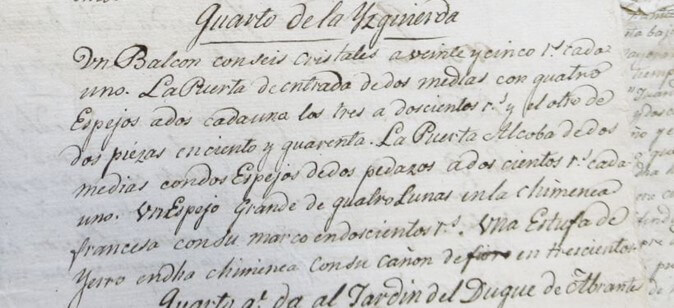 Quarto de la Yzquierda
Vn Balcon con seis cristales a veinte y cinco rs. cada
uno. La Puerta de entrada de dos medias con quatro
Espejos a dos cada una los tres a doscientos rs. y el otro de
dos piezas en ciento y quarenta. La Puerta Alcoba de dos
medias con dos Espejos de dos pedazos a dos cientos rs. cada
uno. Vn Espejo Grande de quatro Lunas en la chimenea
francesa con su marco en doscientos rs. Vna Estufa de
Yerro en dha chimenea con su cañon de fierro en trescientos
Quarto qe. da al Jardin del Duque de Abrante